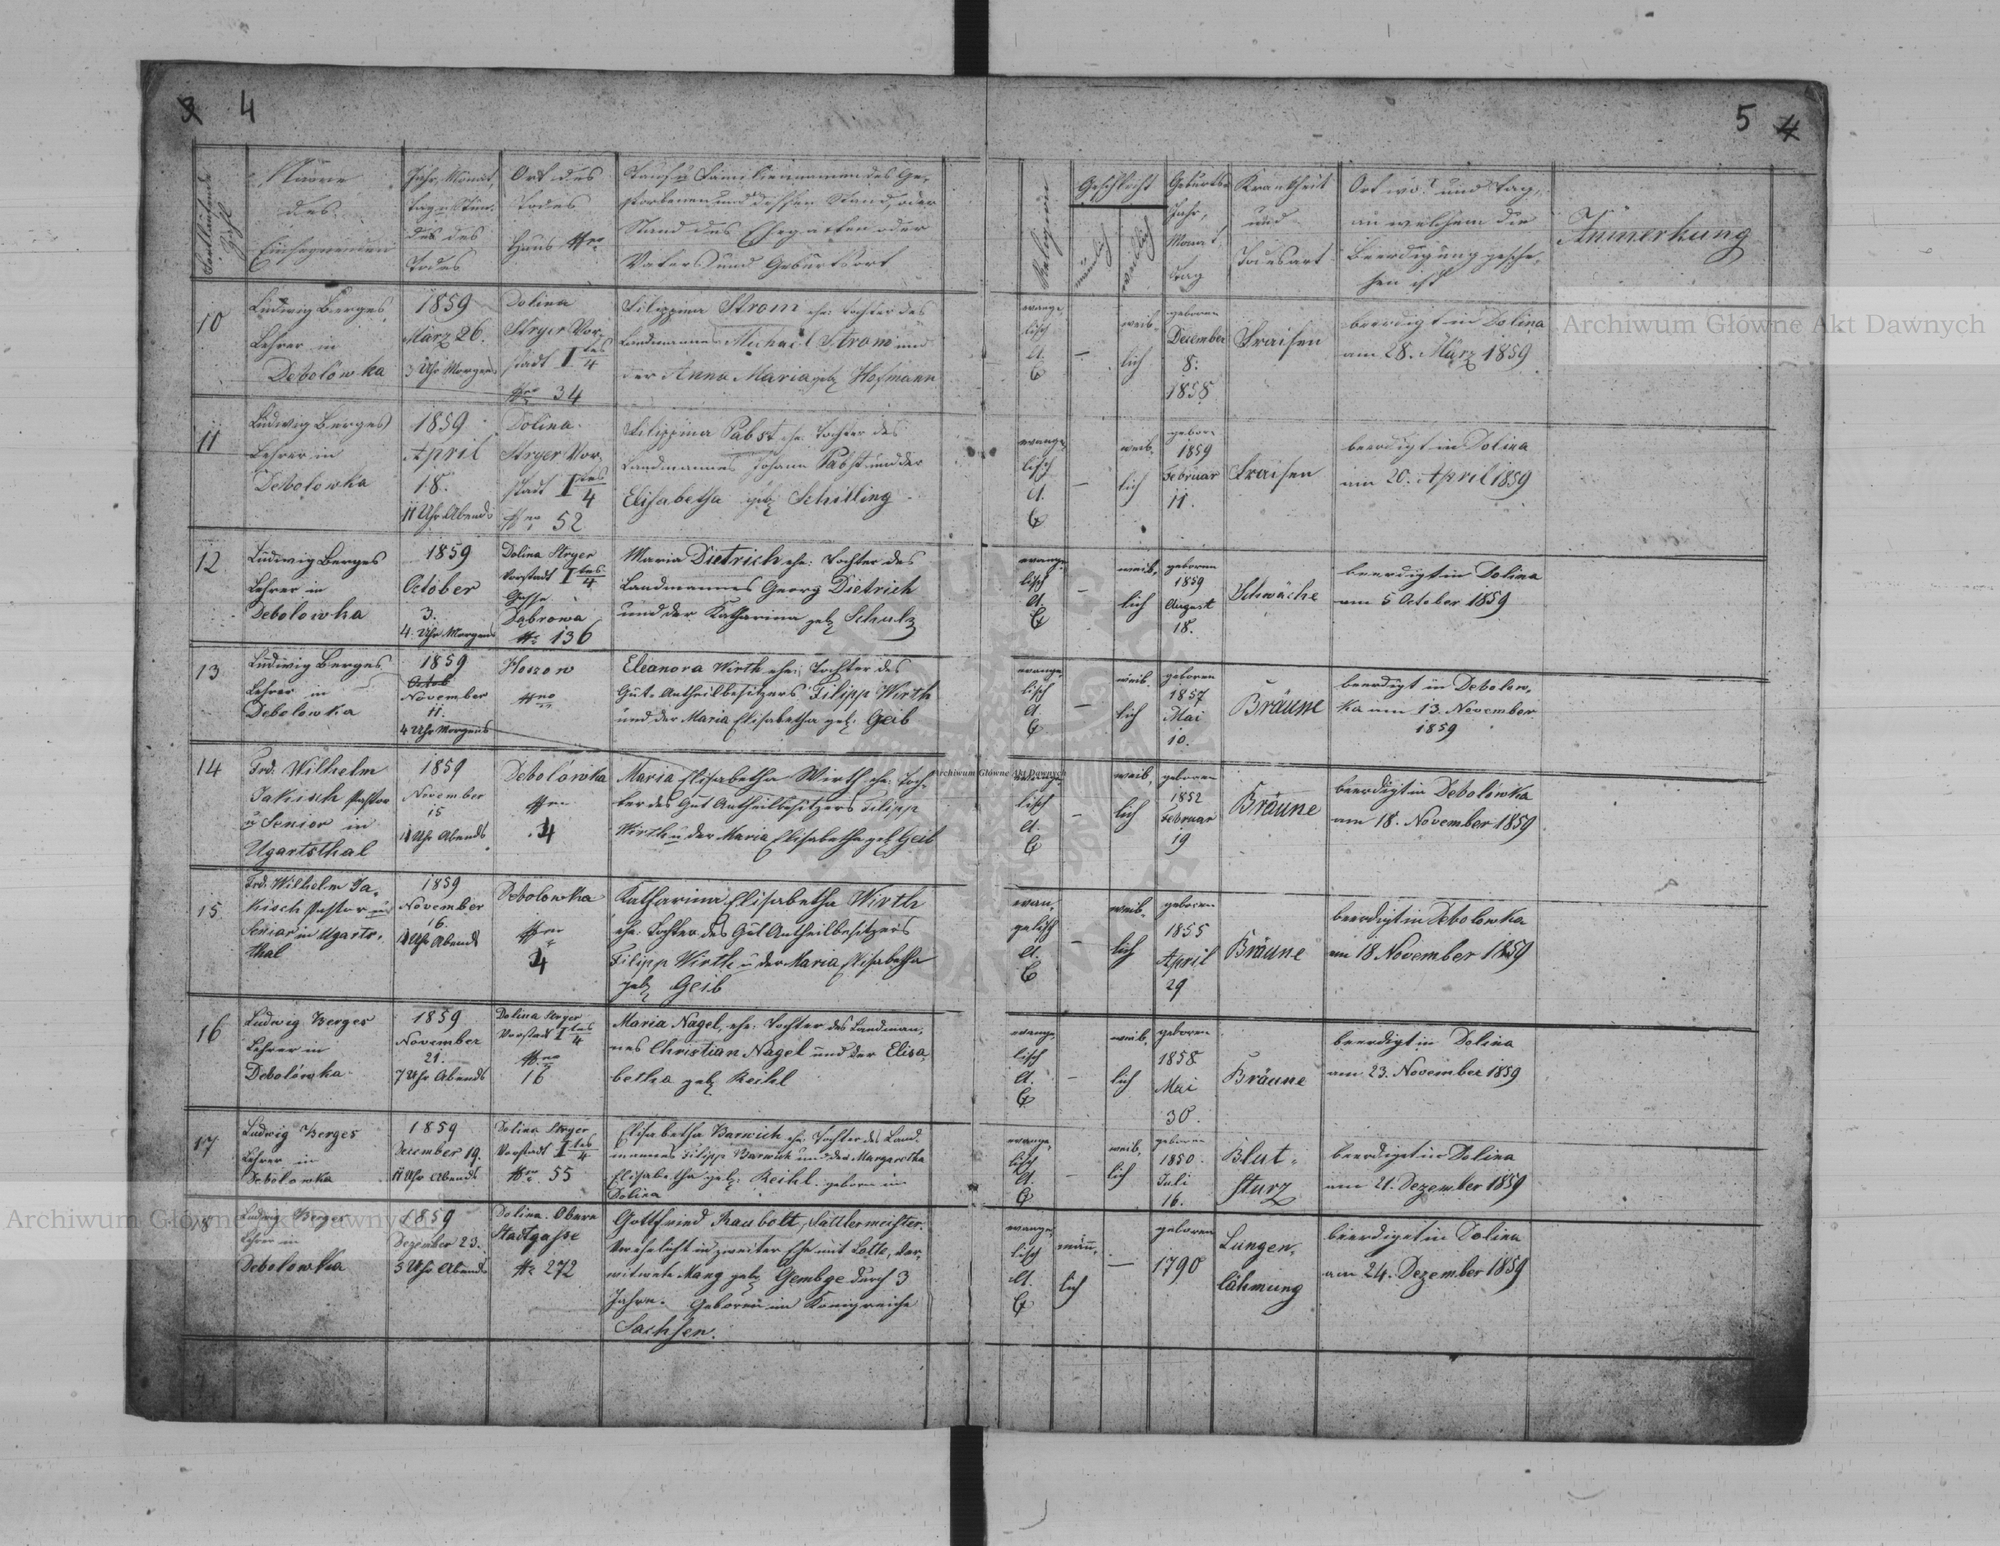 3 4
5 4
Fortlaufende Zahl
Name des Einsegnenden
Jahr, Monat, Tag u. Stunde des Todes
Ort des Todes Haus Nro
Tauf u. Familiennamen des Gestorbenen und dessen Stand, oder Stand des Ehegatten oder Vaters und Geburtsort
Religion
Geschlecht
männlich
weiblich
Geburts-Jahr, Monat, Tag
Krankheit und Todesart
Ort wo? und Tag, an welchem die Beerdigung geschehen ist
Anmerkung
10
Ludwig Berges,
Lehrer in
Debolówka
1859
März 26.
3 Uhr Morgens
Dolina
Stryer Vor-
stadt Ites/4
Nro 34
Filippina Strom ehe: Tochter des
Landmannes Michael Strom und
der Anna Maria geb. Hofmann
evange-
lisch
A.
C
–
weib-
lich
geboren
December
8.
1858
Fraisen
beerdigt in Dolina
am 28. März 1859
11
Ludwig Berges
Lehrer in
Debolowka
1859
April
18.
11 Uhr Abends
Dolina.
Stryer Vor-
stadt Ites/4
Nro 52
Filippina Pabst ehe: Tochter des
Landmannes Johann Pabst und der
Elisabetha geb. Schilling
evange-
lisch
A.
C
–
weib-
lich
geboren
1859
Februar
11.
Fraisen
beerdigt in Dolina
am 20. April 1859
12
Ludwig Berges
Lehrer in
Debolowka
1859
October
3.
4. Uhr Morgens
Dolina Stryer
Vorstadt Ites/4
Gasse
Dąbrowa
Nr 136
Maria Dietrich ehe: Tochter des
Landmannes Georg Dietrich
und der Katharina geb. Schulz
evange-
lisch
A.
C
–
weib-
lich
geboren
1859
August
18.
Schwäche
beerdigt in Dolina
am 5 October 1859
13
Ludwig Berges
Lehrer in
Debolowka
1859
Octob
November
11.
4 Uhr Morgens
Hoszow
Nro
Eleanora Wirth ehe: Tochter des
Guts Antheilbesitzers Filipp Wirth
und der Maria Elisabetha geb: Geib
evange-
lisch
A.
C
–
weib-
lich
geboren
1857
Mai
10.
Bräune
beerdigt in Debolow-
ka am 13. November
1859
14
Frd. Wilhelm
Jakisch Pastor
u. Senior in
Ugartsthal
1859
November
15
11 Uhr Abends
Debolówka
Nro
4
Maria Elisabetha Wirth ehe: Toch-
ter des Gut Antheilbesitzers Filipp
Wirth u. der Maria Elisabetha geb. Geib
evange-
lisch
A.
C
–
weib-
lich
geboren
1852
Februar
19
Bräune
beerdigt in Debolówka
am 18. November 1859
15
Frd. Wilhelm Ja-
kisch Pastor und
Senior in Ugarts-
thal
1859
November
16.
Uhr Abends
Debolowka
Nro
4
Katharina Elisabetha Wirth
ehe: Tochter des Gut Antheilbesitzers
Filipp Wirth u. der Maria Elisabetha
geb. Geib
evan-
gelisch
A.
C
–
weib-
lich
geboren
1855
April
29
Bräune
beerdigt in Debolowka
am 18 November 1859
16
Ludwig Berges
Lehrer in
Debolówka.
1859
November
21.
7 Uhr Abends
Dolina Stryer
Vorstadt Ites/4
Nro
16
Maria Nagel, ehe: Tochter des Landman-
nes Christian Nagel und der Elisa
betha geb. Reihl
evange-
lisch
A.
C
–
weib-
lich
geboren
1858
Mai
30.
Bräune
beerdigt in Dolina
am 23. November 1859
17
Ludwig Berges
Lehrer in
Debolowka
1859
Dezember 19.
11 Uhr Abends
Dolina Stryer
Vorstadt Ites/4
Nro. 55
Elisabetha Barwich ehe: Tochter des Land-
mannes Filipp Barwich und der Margaretha
Elisabetha geb: Reihl. geboren in
Dolina
evange-
lisch
A.
C
–
weib-
lich
geboren
1850.
Juli
16.
Blut-
sturz
beerdiget in Dolina
am 21. Dezember 1859
18
Ludwig Berges
Lehrer in
Debolowka
1859
Dezember 23.
5 Uhr Abends
Dolina. Obere
Stadtgasse
Nr 272
Gottfried Raubolt, Sattlermeister.
Verehelicht in zweiter Ehe mit Lotte, ver-
witwete Mang geb. Gembge durch 3
Jahre. Geboren im Königreiche
Sachsen.
evange-
lisch
A.
C
männ-
lich
–
geboren
1790
Lungen-
lähmung
beerdiget in Dolina
am 24. Dezember 1859
Archiwum Główne Akt Dawnych
Archiwum Główne Akt Dawnych
Archiwum Główne Akt Dawnych